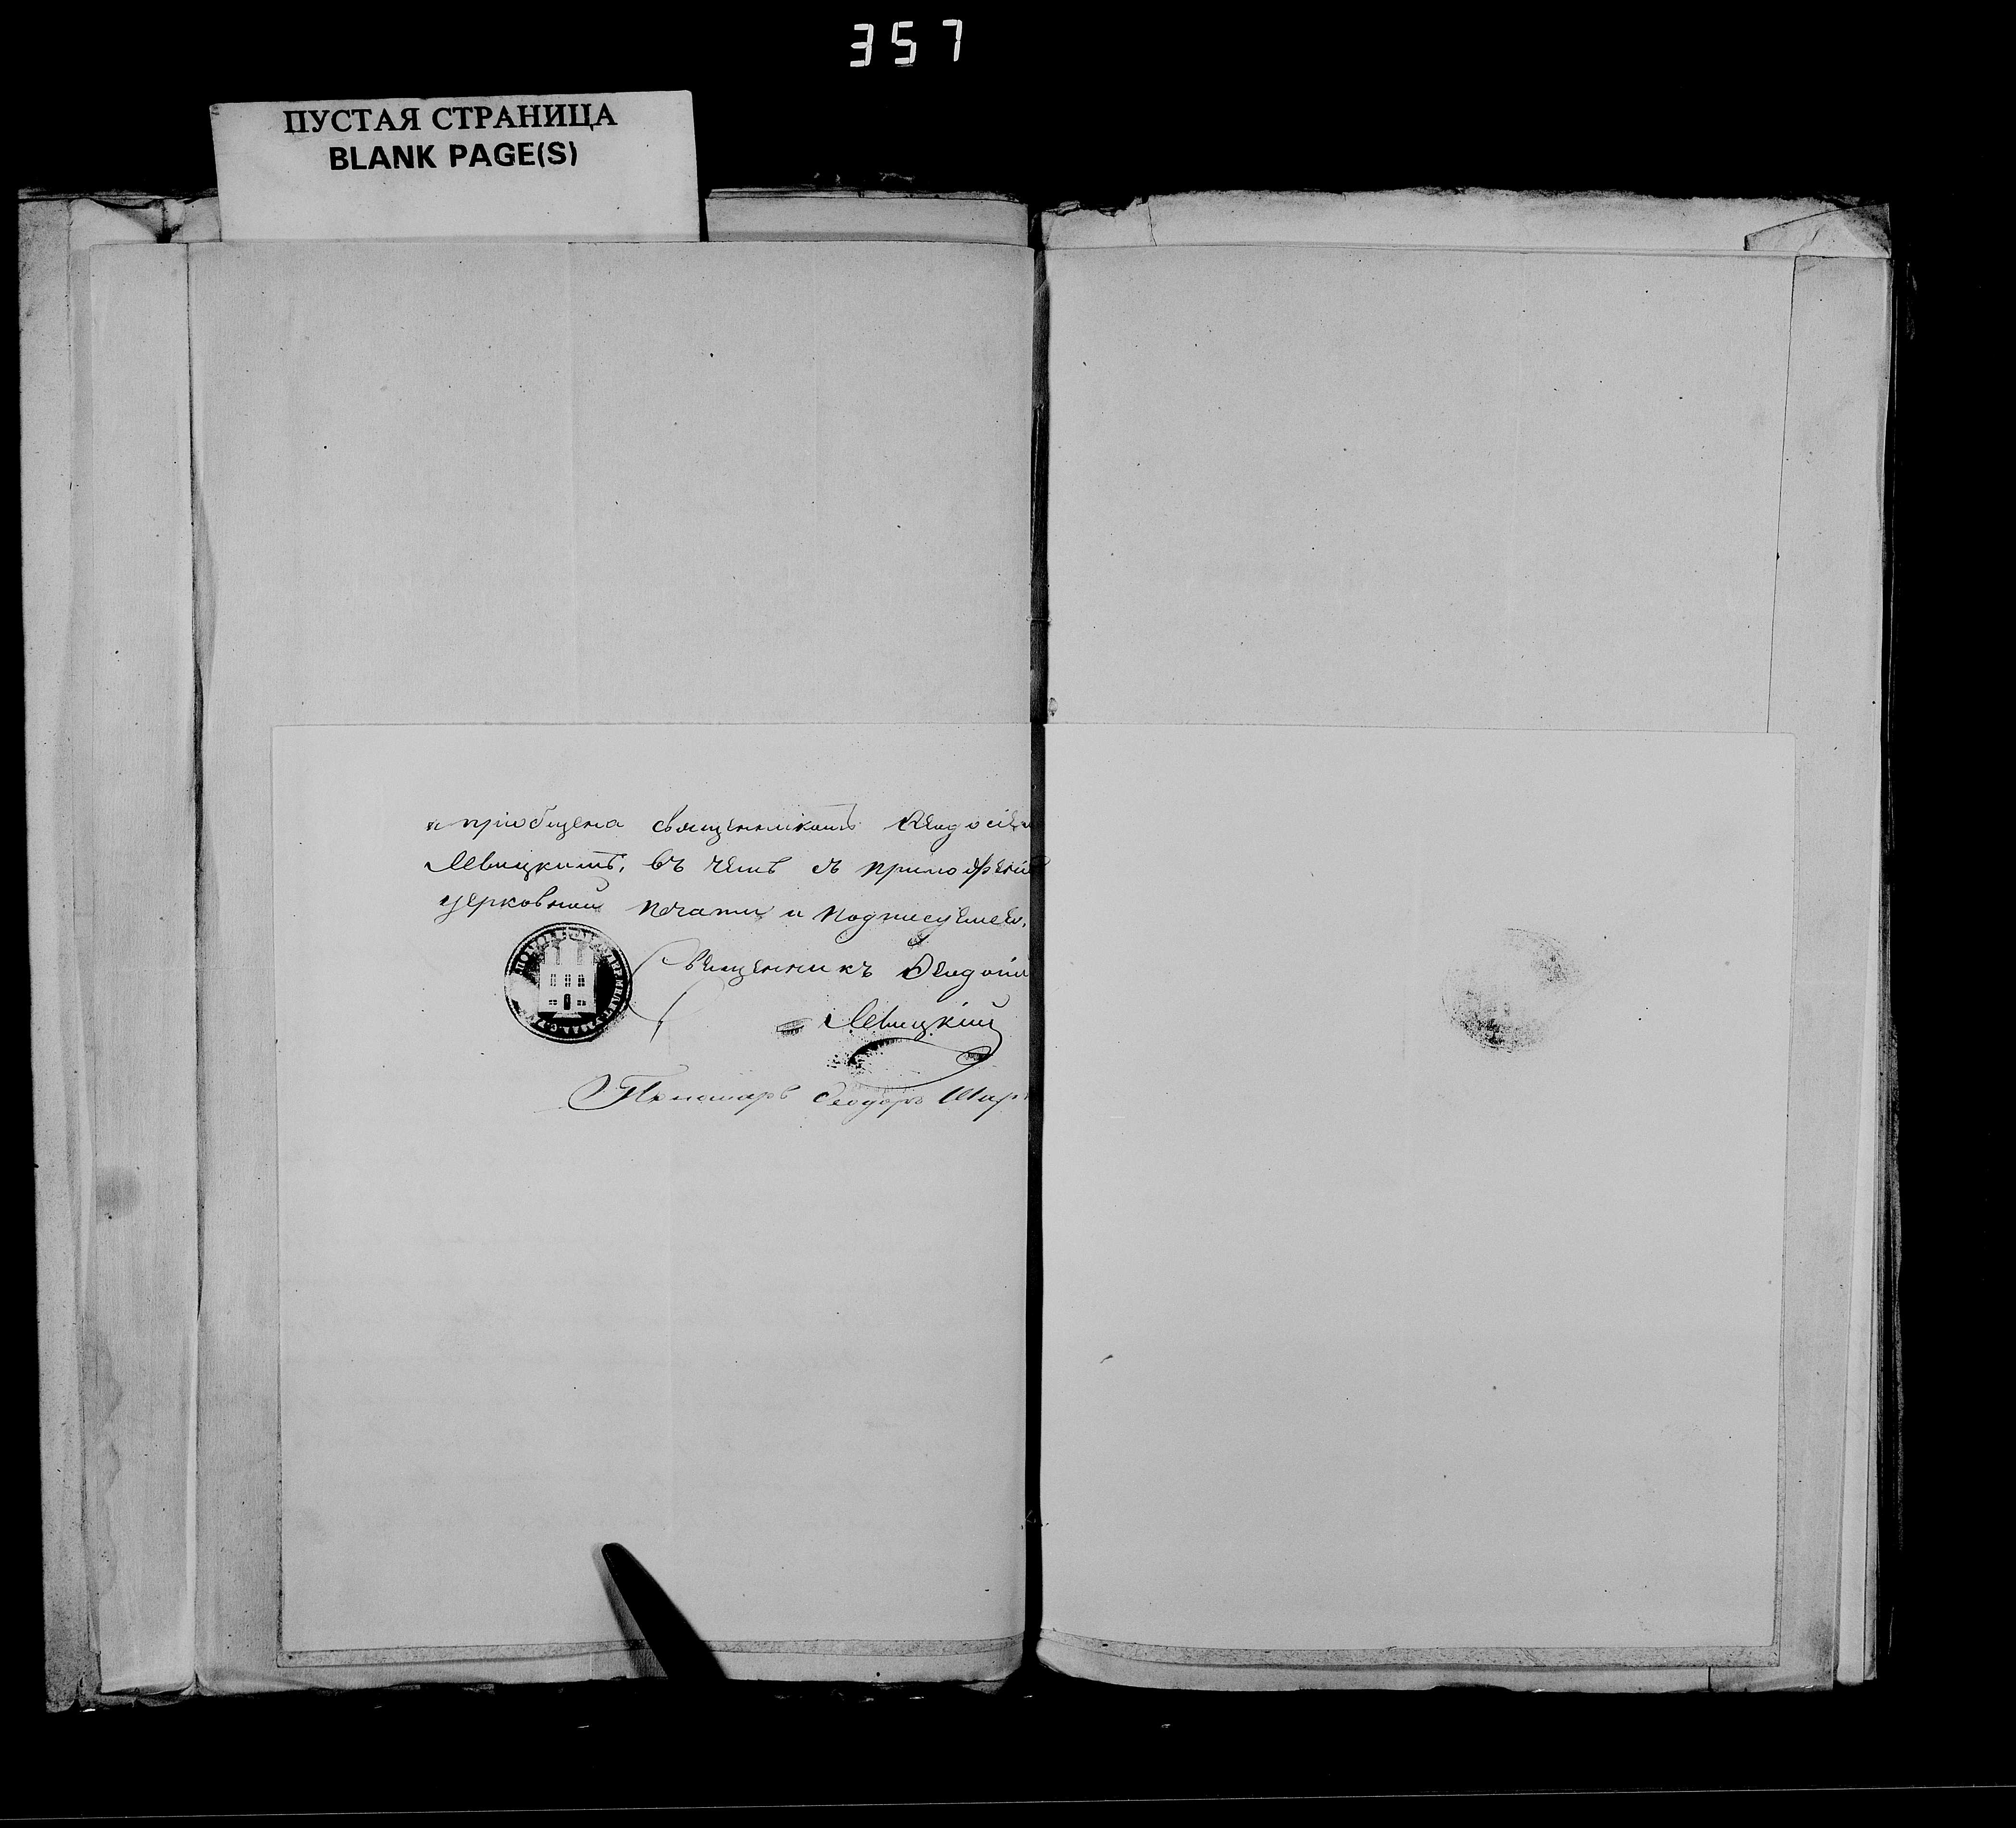 357
ПУСТАЯ СТРАНИЦА
BLANK PAGE(S)
и пріобщена священникомъ Ѳеодосіем
Левицкимъ, въ чемъ съ приложеніе
церковной печати и подписуемся.
Священникъ Ѳеодосій
Левицкій
Пономарь Ѳеодоръ Шир